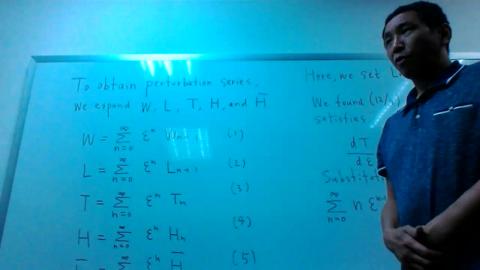 To obtain perturbation series,
we expand W, L, T, H, and H̅
W = ∑_{n=0}^{∞} ε^n W_{n+1} (1)
L = ∑_{n=0}^{∞} ε^n L_{n+1} (2)
T = ∑_{n=0}^{∞} ε^n T_n (3)
H = ∑_{n=0}^{∞} ε^n H_n (4)
H̅ (5)
Here, we set L
We found (12/
satisfies
dT
dε
Substitut
∑_{n=0}^{∞} n ε^{n-